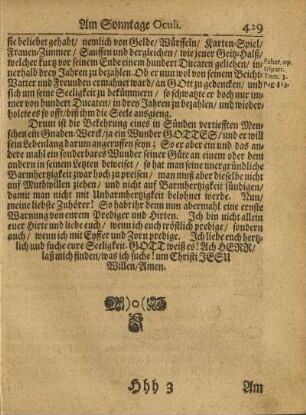 Am Sonntage Oculi. 429
sie beliebet gehabt / nemlich von Gelde / Würffeln / Karten-Spiel /
Frauen-Zimmer / Sauffen und dergleichen / wie jener Geitz-Halß /
welcher kurtz vor seinem Ende einem hundert Ducaten geliehen / in-
nerhalb drey Jahren zu bezahlen. Ob er nun wol von seinem Beicht-
Vatter und Freunden ermahnet ward / an GOtt zu gedencken / und
sich um seine Seeligkeit zu bekümmern / so schwatzte er doch nur im-
mer von hundert Ducaten / in drey Jahren zu bezahlen / und wieder-
holete es so offt / biß ihm die Seele ausgieng.
Faber. op.
tripart.
Tom. 3.
pag.
Drum ist die Bekehrung eines in Sünden vertiefften Men-
schen ein Gnaden-Werck / ja ein Wunder GOTTES / und er will
sein Lebenlang darum angeruffen seyn; So er aber ein und das an-
dere mahl ein sonderbares Wunder seiner Güte an einem oder dem
andern in seinem Letzten beweiset / so hat man seine unergründliche
Barmhertzigkeit zwar hoch zu preisen / man muß aber dieselbe nicht
auf Muthwillen ziehen / und nicht auf Barmhertzigkeit sündigen /
damit man nicht mit Unbarmhertzigkeit belohnet werde. Nun /
meine liebste Zuhörer! So habt ihr denn nun abermahl eine ernste
Warnung von eurem Prediger und Hirten. Ich bin nicht allein
euer Hirte und liebe euch / wenn ich euch tröstlich predige / sondern
auch / wenn ich mit Eyffer und Zorn predige. Ich liebe euch hertz-
lich und suche eure Seeligkeit. GOTT weiß es! Ach HERR /
laß mich finden / was ich suche! um Christi JESU
Willen / Amen.
Hhh 3 Am